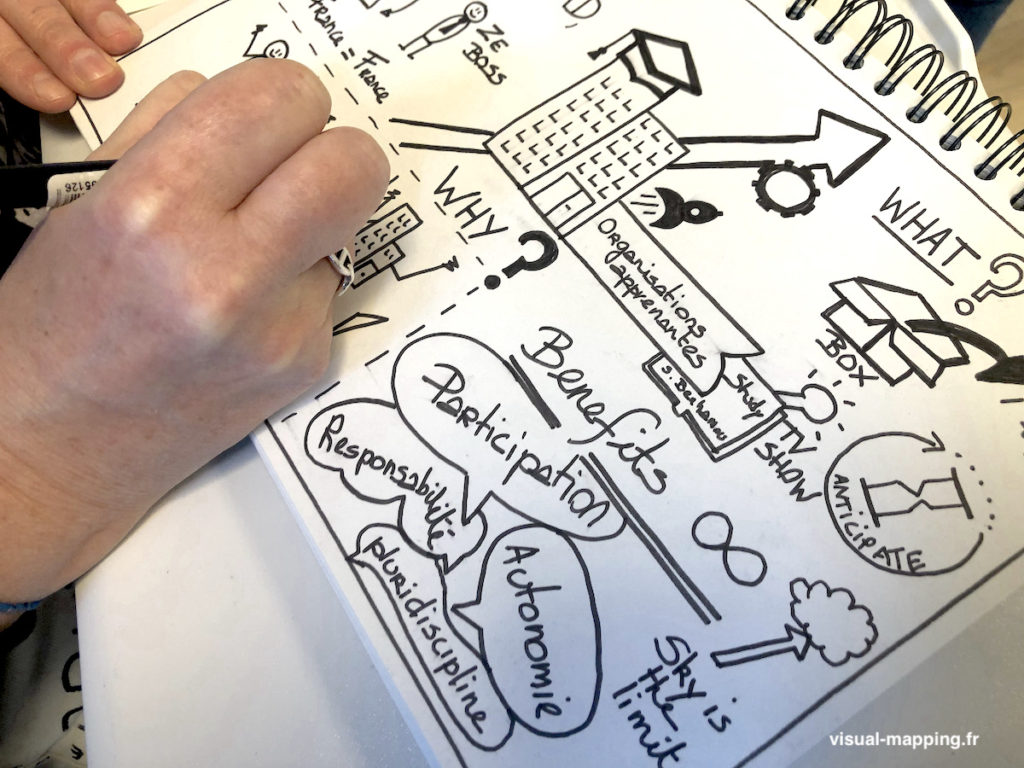 France = France
ZE
BOSS
D,
WHY
?
Organisations
apprenantes
Study
TV
SHOW
WHAT
?
BOX
ANTICIPATE
Benefits
Participation
Responsabilité
pluridiscipline
Autonomie
Sky is
the
limit
05126
visual-mapping.fr